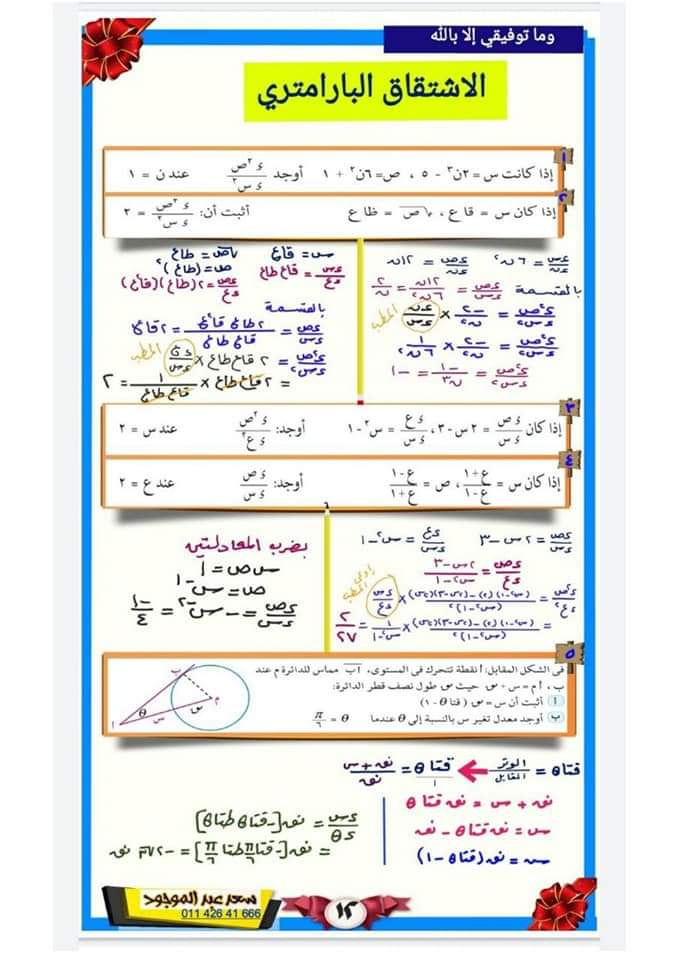 وما توفيقي إلا بالله
الاشتقاق البارامتري
١
إذا كانت س = ٢ن٣ - ٥ ، ص = ٦ن٢ + ١ أوجد ء٢ص/ء س٢ عند ن = ١
٢
إذا كان س = قا ع ، √ص = ظا ع أثبت أن: ء٢ص/ء س٢ = ٢
ءس/ءن = ٦ن٢ ءص/ءن = ١٢ن
بالقسمة ءص/ءس = ١٢ن/٦ن٢ = ٢/ن
ء٢ص/ءس٢ = -٢/ن٢ × ءن/ءس المطلب
ء٢ص/ءس٢ = -٢/ن٢ × ١/٦ن٢
ء٢ص/ءس٢ = -١/ن٣ = -١
س = قاع √ص = طاع
ءس/ءع = قاع طاع ص = (طاع)٢
ءص/ءع = ٢(طاع)(قا٢ع)
بالقسمة
ءص/ءس = ٢طاع قا٢ع/قاع طاع = ٢قاع
ء٢ص/ءس٢ = ٢ قاع طاع × ءع/ءس المطلب
= ٢ قاع طاع × ١/قاع طاع = ٢
٣
إذا كان ء ص/ء س = ٢ س - ٣ ، ء ع/ء س = س٢ - ١ أوجد: ء٢ص/ء ع٢ عند س = ٢
٤
إذا كان س = ع + ١/ع - ١ ، ص = ع - ١/ع + ١ أوجد: ء ص/ء س عند ع = ٢
ءص/ءس = ٢س - ٣ ءع/ءس = س٢ - ١
ءص/ءع = ٢س - ٣/س٢ - ١
ء٢ص/ءع٢ = (س٢-١)(٢) - (٢س-٣)(٢س)/(س٢-١)٢ × ءس/ءع
= (س٢-١)(٢) - (٢س-٣)(٢س)/(س٢-١)٢ × ١/س٢-١ = ٢/٢٧
بضرب المعادلتين
س ص = ١
ص = س-١
ءص/ءس = - س-٢ = -١/٤
٥
فى الشكل المقابل: أ نقطة تتحرك فى المستوى، أب مماس للدائرة م عند
ب ، أ م = س + نق حيث نق طول نصف قطر الدائرة:
أ أثبت أن س = نق ( قتا θ - ١)
ب أوجد معدل تغير س بالنسبة إلى θ عندما θ = π/٦
ب
م
نق
س
θ
أ
قتا θ = الوتر/المقابل قتا θ/١ = نق + س/نق
نق + س = نق قتا θ
س = نق قتا θ - نق
س = نق (قتا θ - ١)
ءس/ءθ = نق [-قتا θ ظتا θ]
= نق [-قتا π/٦ ظتا π/٦] = -٢√٣ نق
سعد عبد الموجود
011 426 41 666
١٢